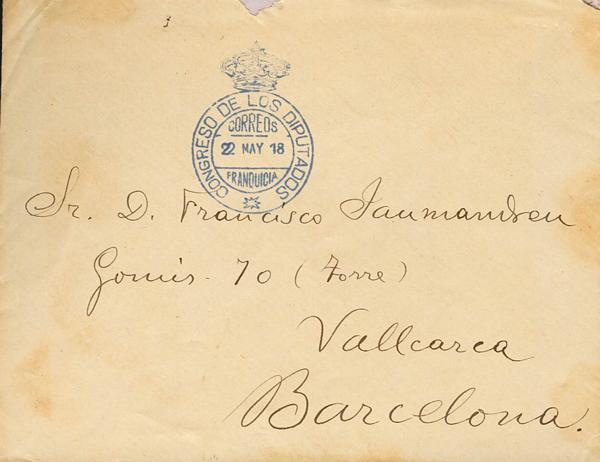 CONGRESO DE LOS DIPUTADOS
CORREOS
22 MAY 18
FRANQUICIA
Sr. D. Francisco Jaumandreu
Gomis - 70 (Torre)
Vallcarca
Barcelona.